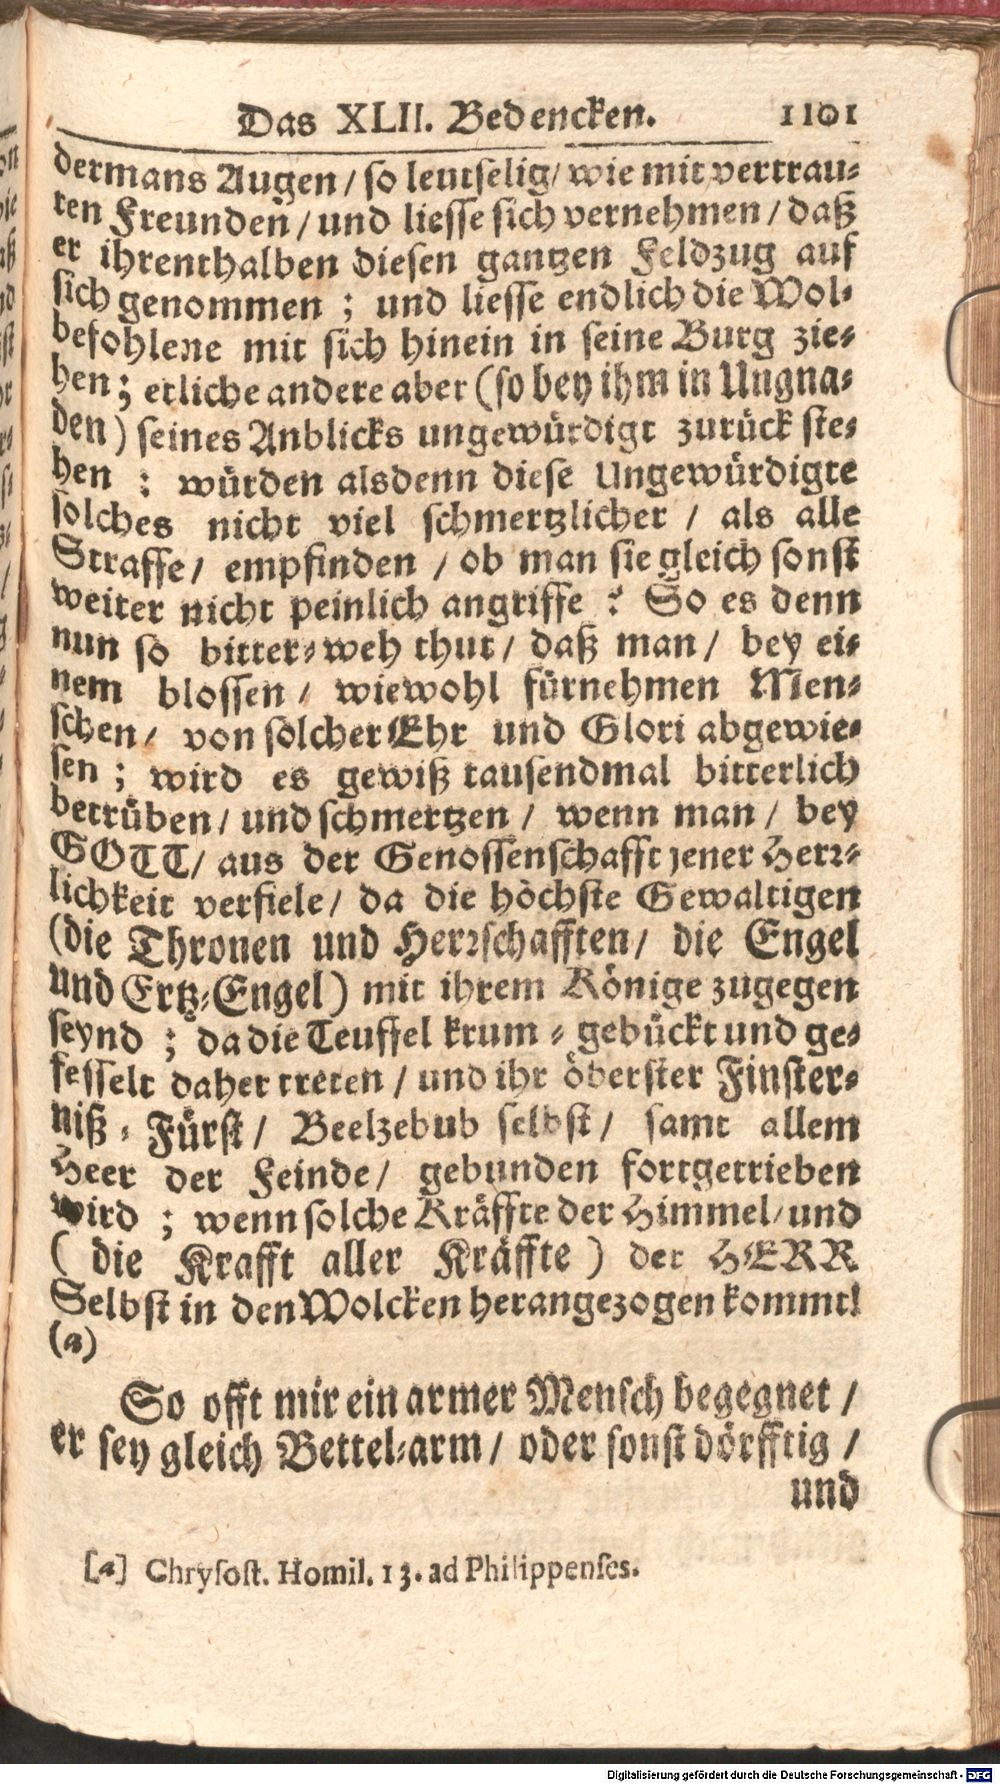 Das XLII. Bedencken. 1101
dermans Augen / so leutselig / wie mit vertrau-
ten Freunden / und liesse sich vernehmen / daß
er ihrenthalben diesen gantzen Feldzug auf
sich genommen ; und liesse endlich die Wol-
befohlene mit sich hinein in seine Burg zie-
hen ; etliche andere aber (so bey ihm in Ungna-
den ) seines Anblicks ungewürdigt zurück ste-
hen : würden alsdenn diese Ungewürdigte
solches nicht viel schmertzlicher / als alle
Straffe / empfinden / ob man sie gleich sonst
weiter nicht peinlich angriffe ? So es denn
nun so bitter-weh thut / daß man / bey ei-
nem blossen / wiewohl fürnehmen Men-
schen / von solcher Ehr und Glori abgewie-
sen ; wird es gewiß tausendmal bitterlich
betrüben / und schmertzen / wenn man / bey
GOTT / aus der Genossenschafft jener Herr-
lichkeit verfiele / da die höchste Gewaltigen
(die Thronen und Herrschafften / die Engel
und Ertz-Engel) mit ihrem Könige zugegen
seynd ; da die Teuffel krum - gebückt und ge-
fesselt daher treten / und ihr öberster Finster-
niß - Fürst / Beelzebub selbst / samt allem
Heer der Feinde / gebunden fortgetrieben
wird ; wenn solche Kräffte der Himmel / und
( die Krafft aller Kräffte ) der HERR
Selbst in den Wolcken herangezogen kommt!
(a)
So offt mir ein armer Mensch begegnet /
er sey gleich Bettel-arm / oder sonst dörfftig /
und
[a] Chrysost. Homil. 13. ad Philippenses.
Digitalisierung gefördert durch die Deutsche Forschungsgemeinschaft - DFG